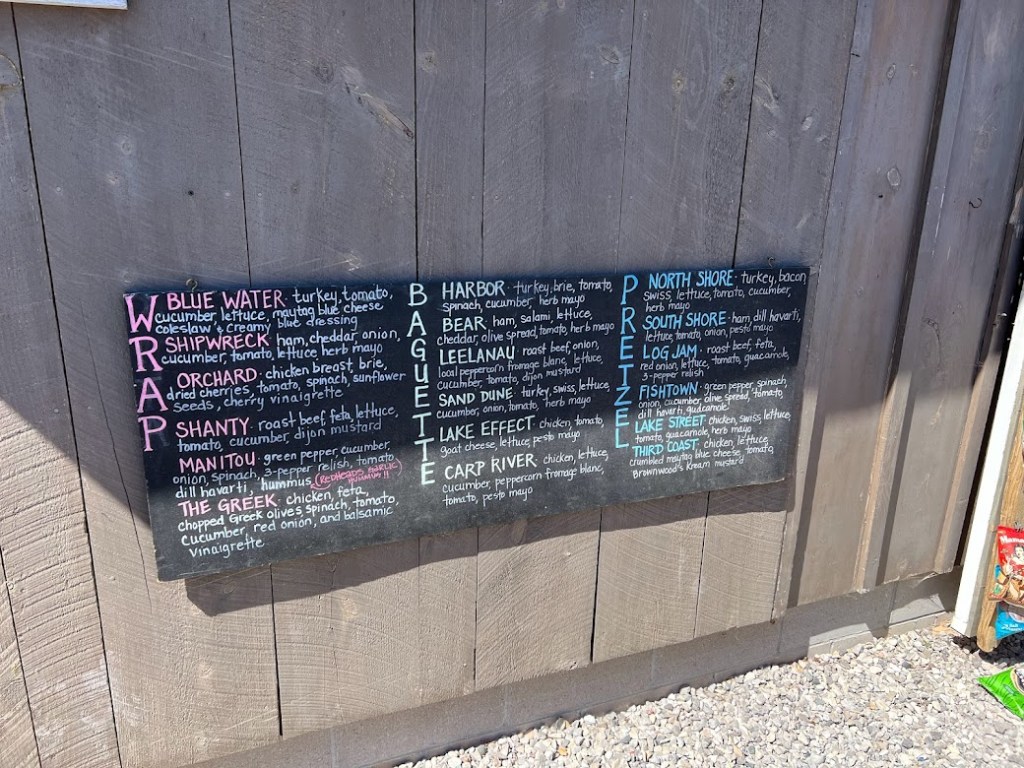 WRAP
BLUE WATER · turkey, tomato,
cucumber lettuce, maytag blue cheese
coleslaw & creamy blue dressing
SHIPWRECK · ham, cheddar, onion,
cucumber, tomato, lettuce herb mayo
ORCHARD · chicken breast, brie,
dried cherries, tomato, spinach, sunflower
seeds, cherry vinaigrette
SHANTY · roast beef, feta, lettuce,
tomato, cucumber, dijon mustard
MANITOU · green pepper, cucumber,
onion, spinach, 3-pepper relish, tomato,
dill havarti, hummus
THE GREEK · chicken, feta,
chopped Greek olives, spinach, tomato,
cucumber, red onion, and balsamic
vinaigrette
BAGUETTE
HARBOR · turkey, brie, tomato,
spinach, cucumber, herb mayo
BEAR · ham, salami, lettuce,
cheddar, olive spread, tomato, herb mayo
LEELANAU · roast beef, onion,
local peppercorn fromage blanc, lettuce,
cucumber, tomato, dijon mustard
SAND DUNE · turkey, swiss, lettuce,
cucumber, onion, tomato, herb mayo
LAKE EFFECT · chicken, tomato,
goat cheese, lettuce, pesto mayo
CARP RIVER · chicken, lettuce,
cucumber, peppercorn fromage blanc,
tomato, pesto mayo
PRETZEL
NORTH SHORE · turkey, bacon,
swiss, lettuce, tomato, cucumber,
herb mayo
SOUTH SHORE · ham, dill havarti,
lettuce, tomato, onion, pesto mayo
LOG JAM · roast beef, feta,
red onion, lettuce, tomato, guacamole,
3-pepper relish
FISHTOWN · green pepper, spinach,
onion, cucumber, olive spread, tomato,
dill havarti, guacamole
LAKE STREET · chicken, swiss, lettuce,
tomato, guacamole, herb mayo
THIRD COAST · chicken, lettuce,
crumbled maytag blue cheese, tomato,
Brownwood's Kream mustard